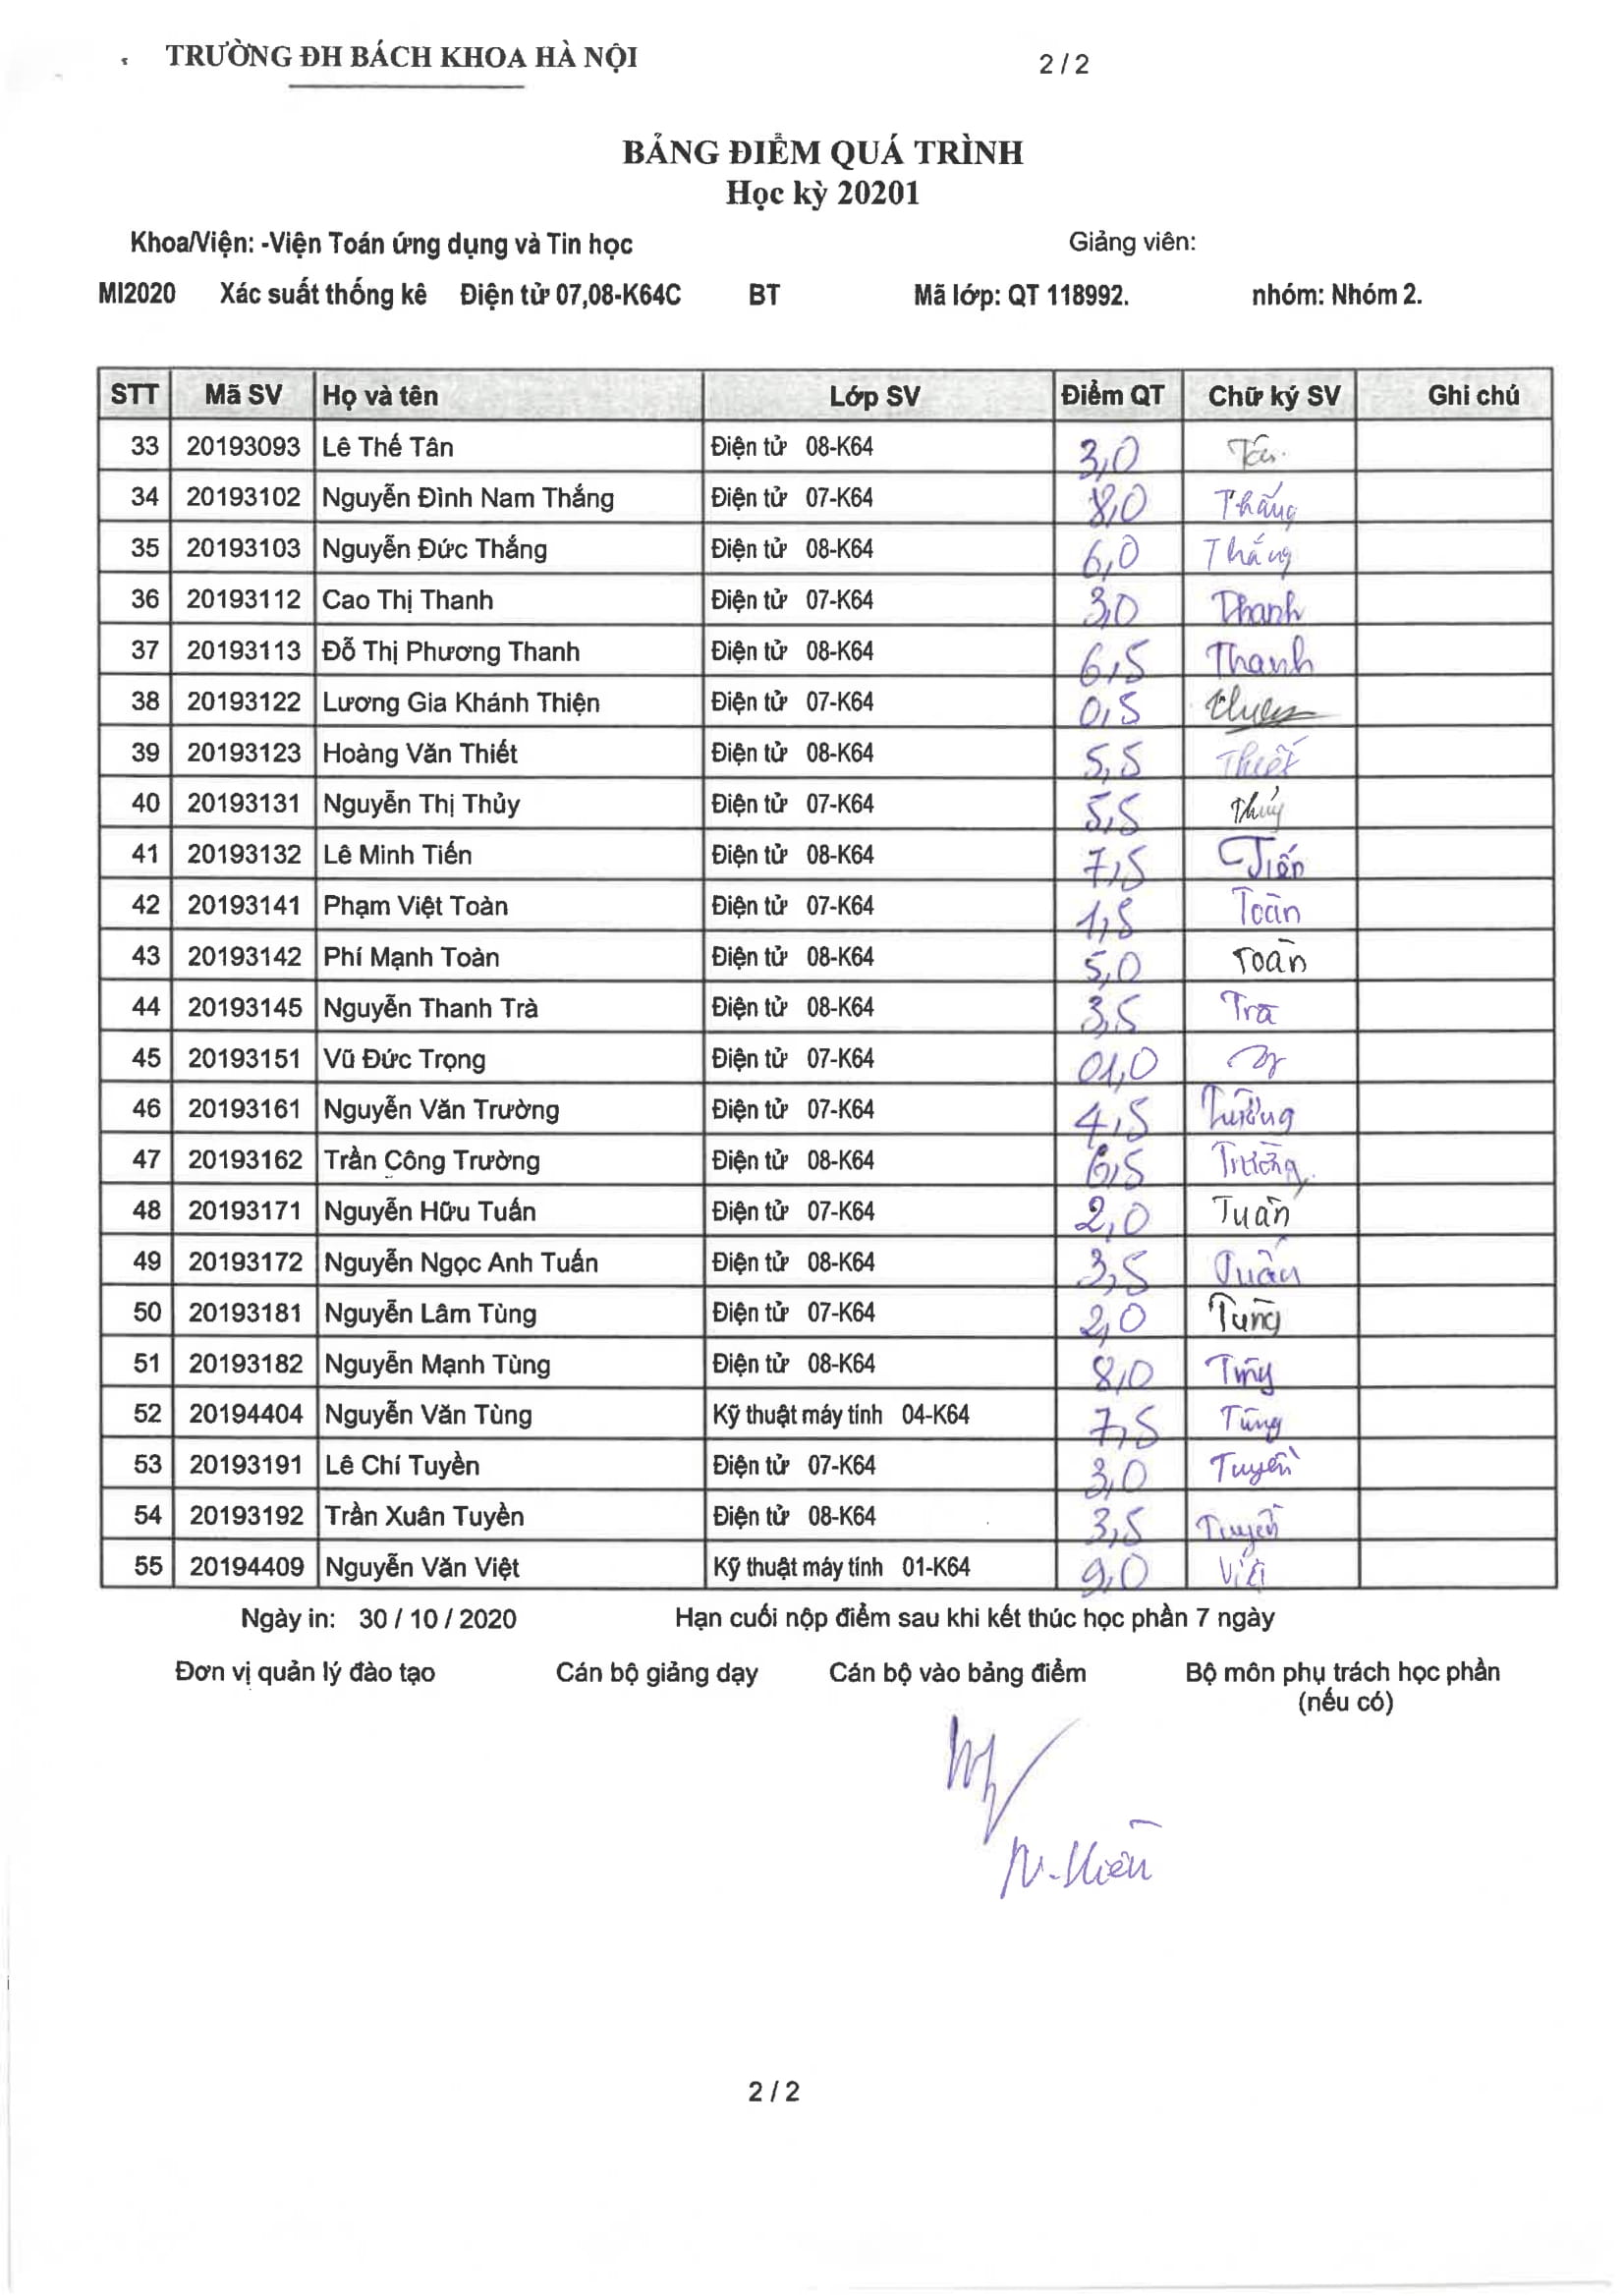 TRƯỜNG ĐH BÁCH KHOA HÀ NỘI 2 / 2
BẢNG ĐIỂM QUÁ TRÌNH
Học kỳ 20201
Khoa/Viện: -Viện Toán ứng dụng và Tin học Giảng viên:
MI2020 Xác suất thống kê Điện tử 07,08-K64C BT Mã lớp: QT 118992. nhóm: Nhóm 2.
STT Mã SV Họ và tên Lớp SV Điểm QT Chữ ký SV Ghi chú
33 20193093 Lê Thế Tân Điện tử 08-K64 3,0
34 20193102 Nguyễn Đình Nam Thắng Điện tử 07-K64 8,0 Thắng
35 20193103 Nguyễn Đức Thắng Điện tử 08-K64 6,0 Thắng
36 20193112 Cao Thị Thanh Điện tử 07-K64 3,0 Thanh
37 20193113 Đỗ Thị Phương Thanh Điện tử 08-K64 6,5 Thanh
38 20193122 Lương Gia Khánh Thiện Điện tử 07-K64 0,5
39 20193123 Hoàng Văn Thiết Điện tử 08-K64 5,5 Thiết
40 20193131 Nguyễn Thị Thủy Điện tử 07-K64 5,5 Thủy
41 20193132 Lê Minh Tiến Điện tử 08-K64 7,5 Tiến
42 20193141 Phạm Việt Toàn Điện tử 07-K64 1,5 Toàn
43 20193142 Phí Mạnh Toàn Điện tử 08-K64 5,0 Toàn
44 20193145 Nguyễn Thanh Trà Điện tử 08-K64 3,5 Trà
45 20193151 Vũ Đức Trọng Điện tử 07-K64 01,0
46 20193161 Nguyễn Văn Trường Điện tử 07-K64 4,5 Trường
47 20193162 Trần Công Trường Điện tử 08-K64 6,5 Trường
48 20193171 Nguyễn Hữu Tuấn Điện tử 07-K64 2,0 Tuấn
49 20193172 Nguyễn Ngọc Anh Tuấn Điện tử 08-K64 3,5 Tuấn
50 20193181 Nguyễn Lâm Tùng Điện tử 07-K64 2,0 Tùng
51 20193182 Nguyễn Mạnh Tùng Điện tử 08-K64 8,0 Tùng
52 20194404 Nguyễn Văn Tùng Kỹ thuật máy tính 04-K64 7,5 Tùng
53 20193191 Lê Chí Tuyền Điện tử 07-K64 3,0 Tuyền
54 20193192 Trần Xuân Tuyền Điện tử 08-K64 3,5 Tuyền
55 20194409 Nguyễn Văn Việt Kỹ thuật máy tính 01-K64 9,0 Việt
Ngày in: 30 / 10 / 2020 Hạn cuối nộp điểm sau khi kết thúc học phần 7 ngày
Đơn vị quản lý đào tạo Cán bộ giảng dạy Cán bộ vào bảng điểm Bộ môn phụ trách học phần
(nếu có)
2 / 2